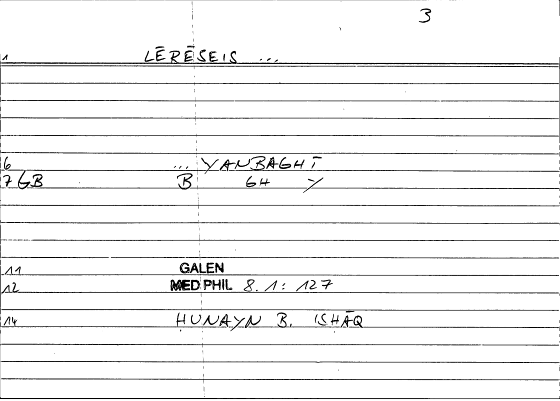 3
1 LĒRĒSEIS ...
6 ... YANBAGHĪ
7 GB B GH Y
11 GALEN
12 MED PHIL 8.1: 127
14 HUNAYN B. ISHĀQ